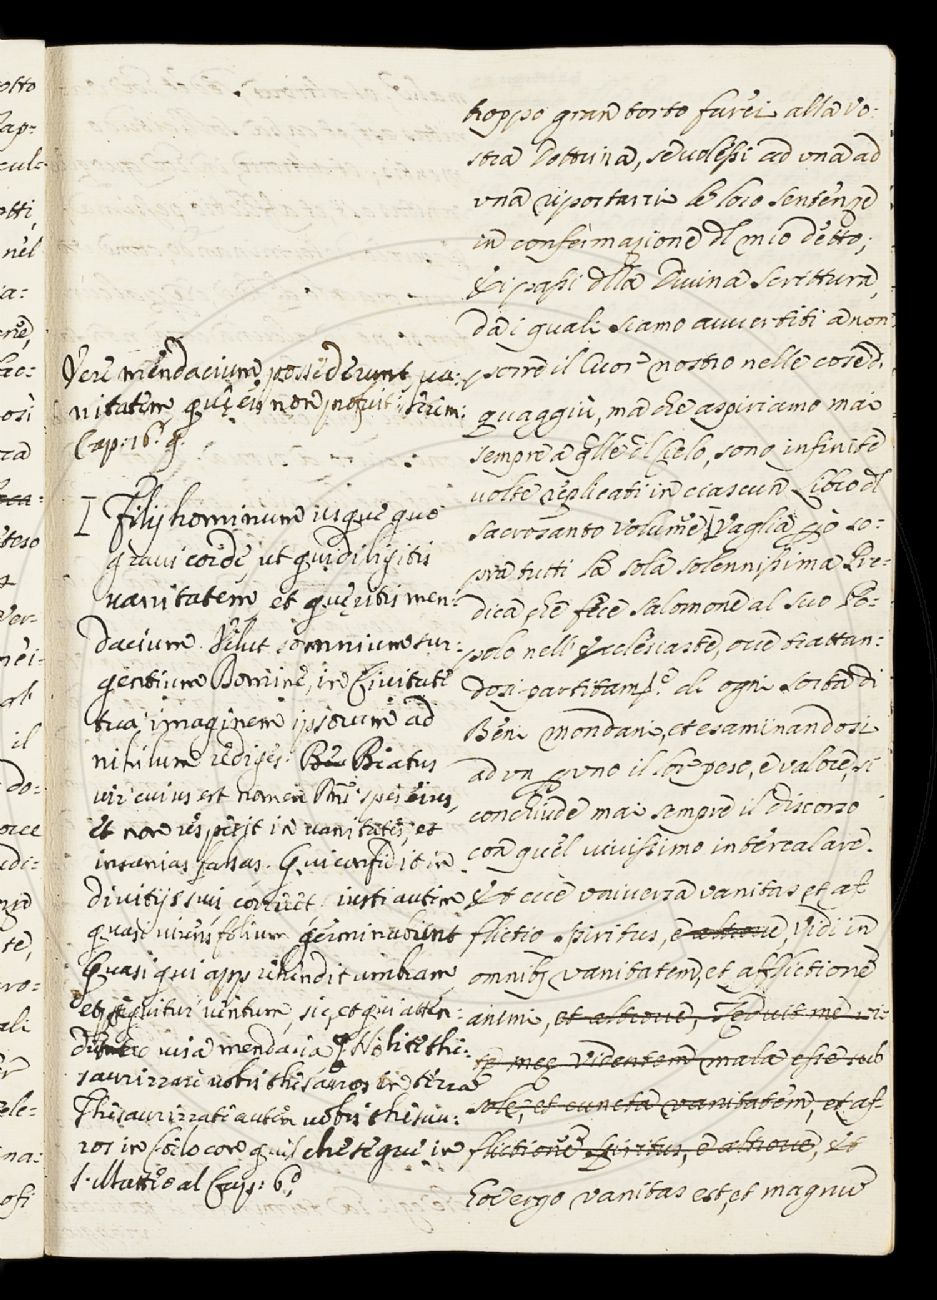 Vere mendacium possederunt, va:
nitatem quę eis non profuit: Ierem:
Cap: 16.º
Filij hominum usque quo
graui corde, ut quid diligitis
uanitatem et quęritis men:
dacium. Velut somnium sur:
gentium Domine, in Ciuitate
tua imaginem ipsorum ad
nihilum rediges. Be Beatus
uir cuius est nomen Dñi spes eius,
et non respexit in uanitates, et
insanias falsas. Qui confidit in
diuitijs suis corruet: iusti autem
quasi uirens folium germinabunt
Quasi qui appręhendit umbram,
et persequitur uentum, sic, et qui atten:
dit ad uisa mendacia. Nolite the:
saurizzare uobis thesauros in terra
Thesaurizzate autem uobis thesau:
ros in Cœlo con quel che segue in
S. Matteo al Cap: 6.º
troppo gran torto farei alla vo:
stra Dottrina, se volessi ad una ad
una riportarui le loro sentenze
in confermazione del mio detto;
Et i passi della Divina Scrittura,
da i quali siamo avvertiti a non
porre il Cuor nostro nelle cose di
quaggiù, ma che aspiriamo mai
sempre a q̃lle del Cielo, sono infinite
volte replicati in ciascun Libro del
sacrosanto Volume. Vaglia p̃ so:
pra tutti la sola solennissima Pre:
dica che fece Salomone al suo Po:
polo nell'Ecclesiaste, ove trattan:
dosi partitam.te di ogni sorta di
Beni mondani, et esaminandosi
ad un p uno il lor peso, e valore, si
conchiude mai sempre il discorso
con quel vivissimo intercalare.
Et ecce universa vanitas, et af
flictio spiritus, e altrove, Vidi in
omnibus vanitatem, et afflictionem
animi, et altrove, Teduit me vi:
tę meę videntem mala esse sub
sole, et cuncta vanitatem, et af:
flictionem spiritus, e altrove, Et
hoc ergo vanitas est, et magnum